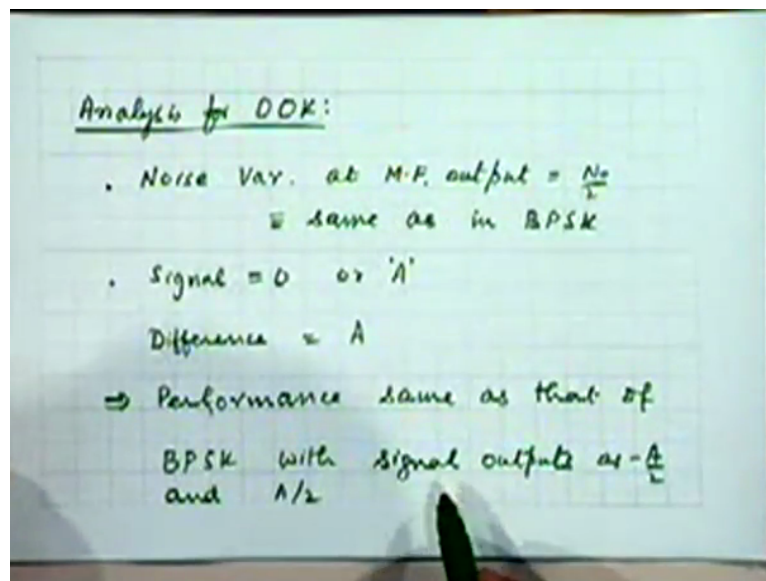 Analysis for OOK:
. Noise Var. at M.F. output = No/2
= same as in BPSK
. Signal = 0 or 'A'
Difference = A
⇒ Performance same as that of
BPSK with signal outputs as -A/2
and A/2